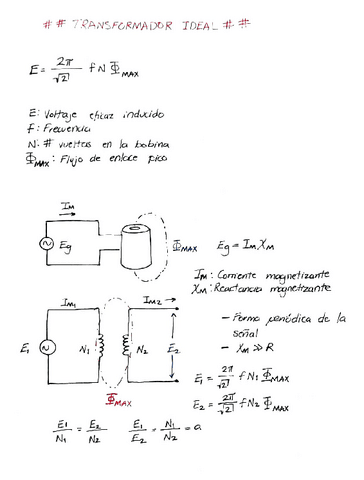 ## TRANSFORMADOR IDEAL ##
E = 2π/√2 f N Φ MAX
E: Voltaje eficaz inducido
F: Frecuencia
N: # vueltas en la bobina
Φ MAX: Flujo de enlace pico
IM
Eg
Φ MAX
Eg = IM XM
IM: Corriente magnetizante
XM: Reactancia magnetizante
- Forma periódica de la señal
- XM >> R
IM1
IM2
E1
N1
N2
E2
Φ MAX
E1 = 2π/√2 f N1 Φ MAX
E2 = 2π/√2 f N2 Φ MAX
E1/N1 = E2/N2
E1/E2 = N1/N2 = a